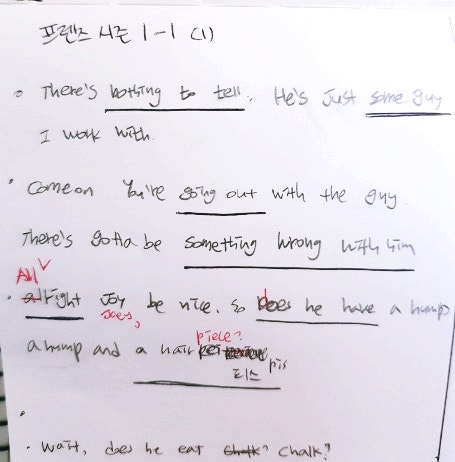 프렌즈 시즌 1-1 (1)
There's nothing to tell. He's just some guy
I work with.
Come on You're going out with the guy.
There's gotta be something wrong with him
All
alright Joy be nice. So does he have a hump
Joey,
piece?
a hump and a hair
피스
Wait, does he eat chalk? chalk?